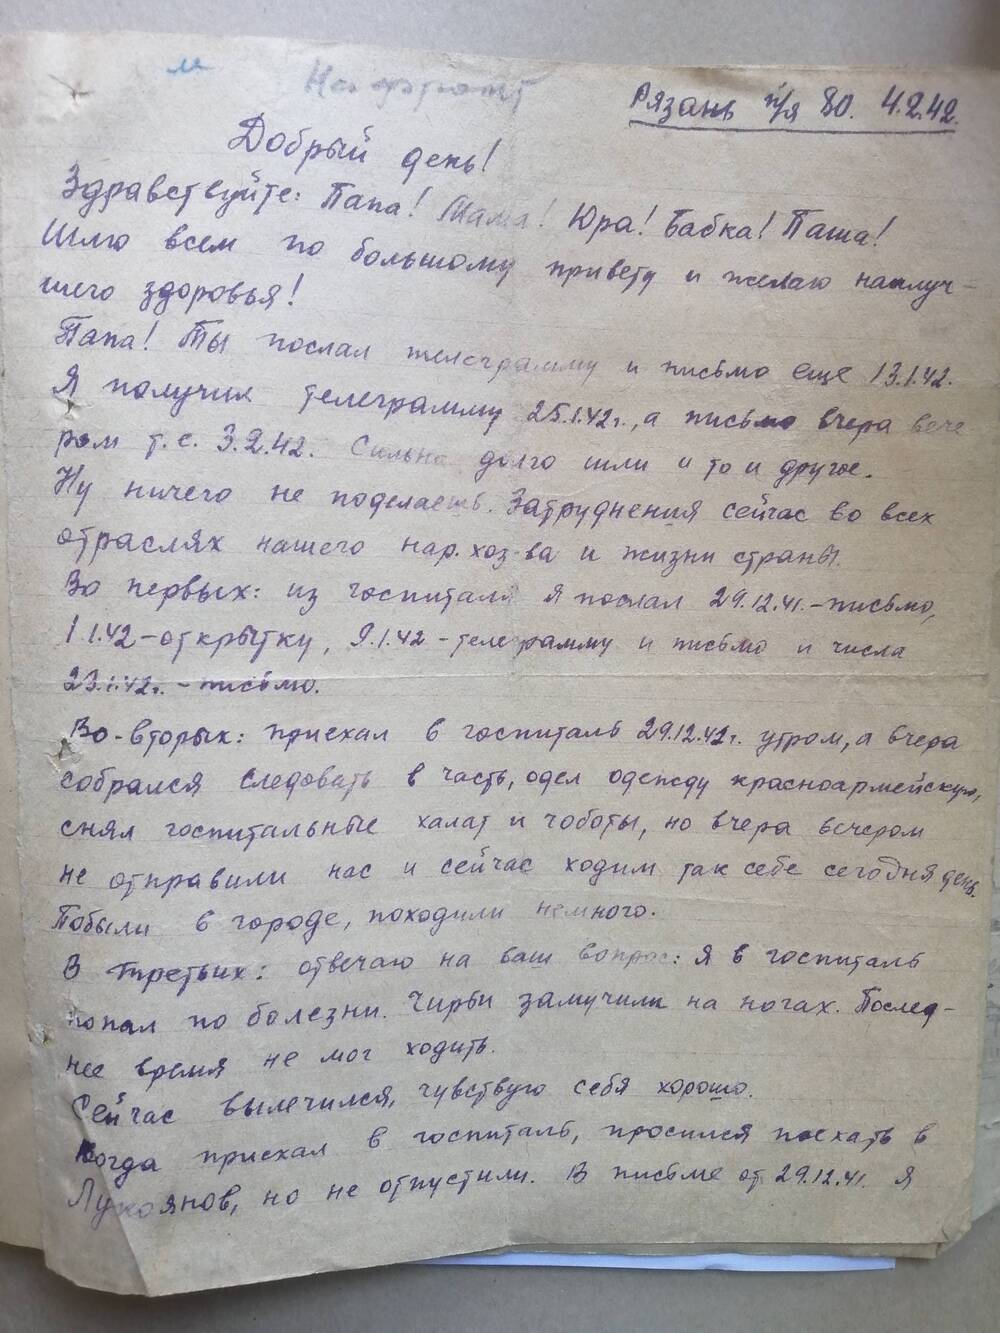 На фронт
Рязань п/я 80. 4.2.42.
Добрый день!
Здравствуйте: Папа! Мама! Юра! Бабка! Паша!
Шлю всем по большому привету и желаю наилуч-
шего здоровья!
Папа! Ты послал телеграмму и письмо еще 13.1.42.
Я получил телеграмму 25.1.42г., а письмо вчера вече
ром т.е. 3.2.42. Сильно долго шли и то и другое.
Ну ничего не поделаешь. Затруднения сейчас во всех
отраслях нашего нар. хоз-ва и жизни страны.
Во первых: из госпиталя я послал 29.12.41.-письмо,
1.1.42-открытку, 9.1.42-телеграмму и письмо и числа
23.1.42г.-письмо.
Во-вторых: приехал в госпиталь 29.12.42г. утром, а вчера
собрался следовать в часть, одел одежду красноармейскую,
снял госпитальные халат и чоботы, но вчера вечером
не отправили нас и сейчас ходим так себе сегодня день.
Побыли в городе, походили немного.
В третьих: отвечаю на ваш вопрос: Я в госпиталь
попал по болезни. Чирьи замучили на ногах. Послед-
нее время не мог ходить.
Сейчас вылечился, чувствую себя хорошо.
Когда приехал в госпиталь, просился поехать в
Лукоянов, но не отпустили. В письме от 29.12.41. я